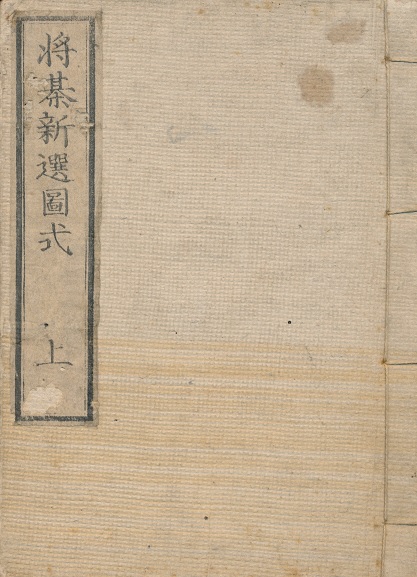 将棊新選圖式 上